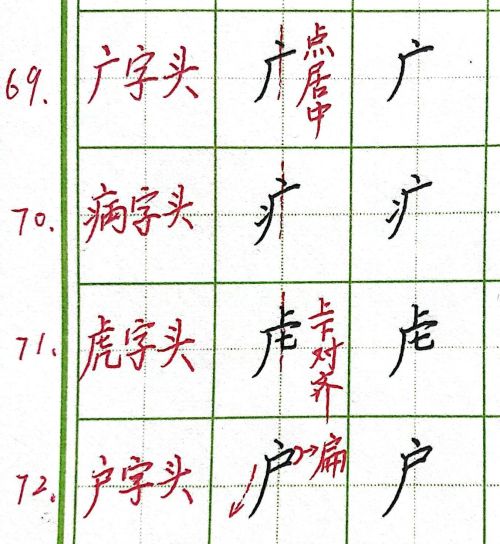 69. 广字头 广 点居中 广
70. 病字头 疒 疒
71. 虎字头 虍 上下对齐 虍
72. 户字头 户 →扁 户